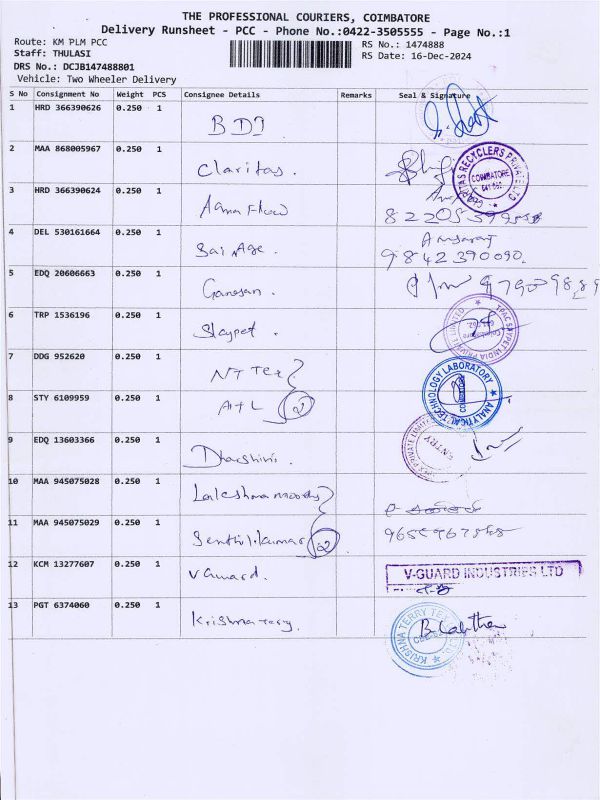 THE PROFESSIONAL COURIERS, COIMBATORE
Delivery Runsheet - PCC - Phone No.:0422-3505555 - Page No.:1
Route: KM PLM PCC
RS No.: 1474888
Staff: THULASI
RS Date: 16-Dec-2024
DRS No.: DCJB147488801
Vehicle: Two Wheeler Delivery
S No Consignment No Weight PCS Consignee Details Remarks Seal & Signature
1 HRD 366390626 0.250 1 BDI
2 MAA 868005967 0.250 1 Claritas.
CLARITAS RECYCLERS PRIVATE LTD COIMBATORE
3 HRD 366390624 0.250 1 Aqua Flow
4 DEL 530161664 0.250 1 Sai Age. 9842390090.
5 EDQ 20606663 0.250 1 Ganesan.
6 TRP 1536196 0.250 1 Skypet.
TPAC SKYPET INDIA PRIVATE LIMITED
7 DDG 952620 0.250 1 NT Tex
ANALYTICAL TECHNOLOGY LABORATORY
8 STY 6109959 0.250 1 ATL 2
9 EDQ 13603366 0.250 1 Dharshini.
ENTRY
10 MAA 945075028 0.250 1 Lakshma
11 MAA 945075029 0.250 1 Senthil.kumar 2
12 KCM 13277607 0.250 1 V Guard.
V-GUARD INDUSTRIES LTD
13 PGT 6374060 0.250 1 Krishna terry.
KRISHNA TERRY